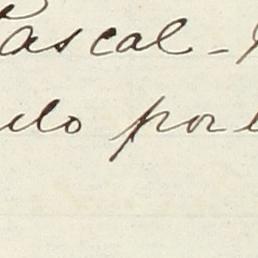 Pascal -
elo por